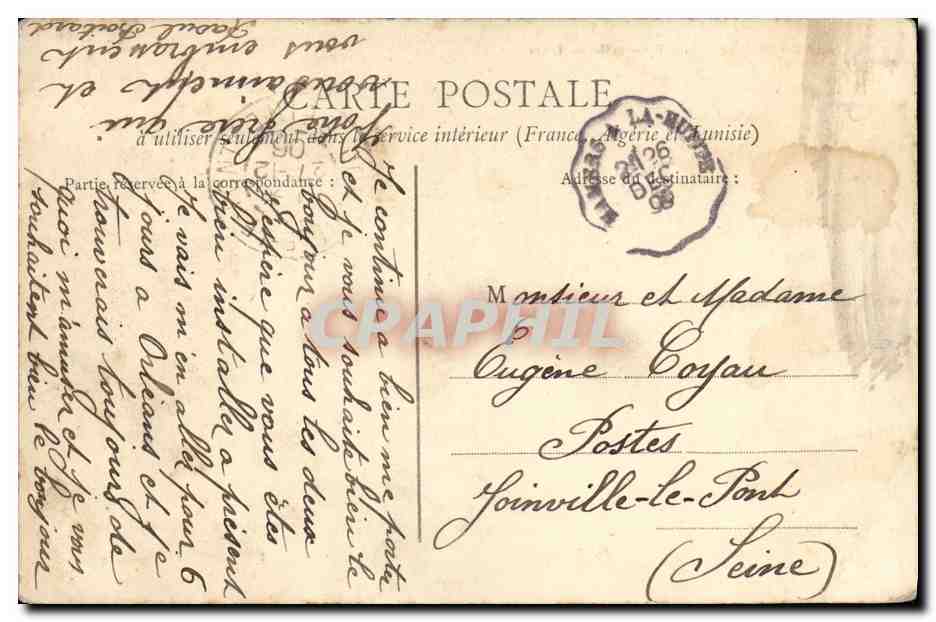 CARTE POSTALE
à utiliser seulement dans le service intérieur (France, Algérie et Tunisie)
Partie réservée à la correspondance :
Adresse du destinataire :
MAMERS A LA-HUTTE
26
DEC
08
Monsieur et Madame
Eugène Coyau
Postes
Joinville-le-Pont
(Seine)
Je continue a bien me porter
et je vous souhaite bien le
bonjour a tous les deux
J'espère que vous êtes
bien installer a présent
Je vais m'en aller pour 6
jours a Orléans et je
trouverais toujours de
quoi m'amuser et je vous
souhaitent bien le bonjour
Votre frère qui
vous aiment et
vous embrassent
Raoul
CPAPHIL